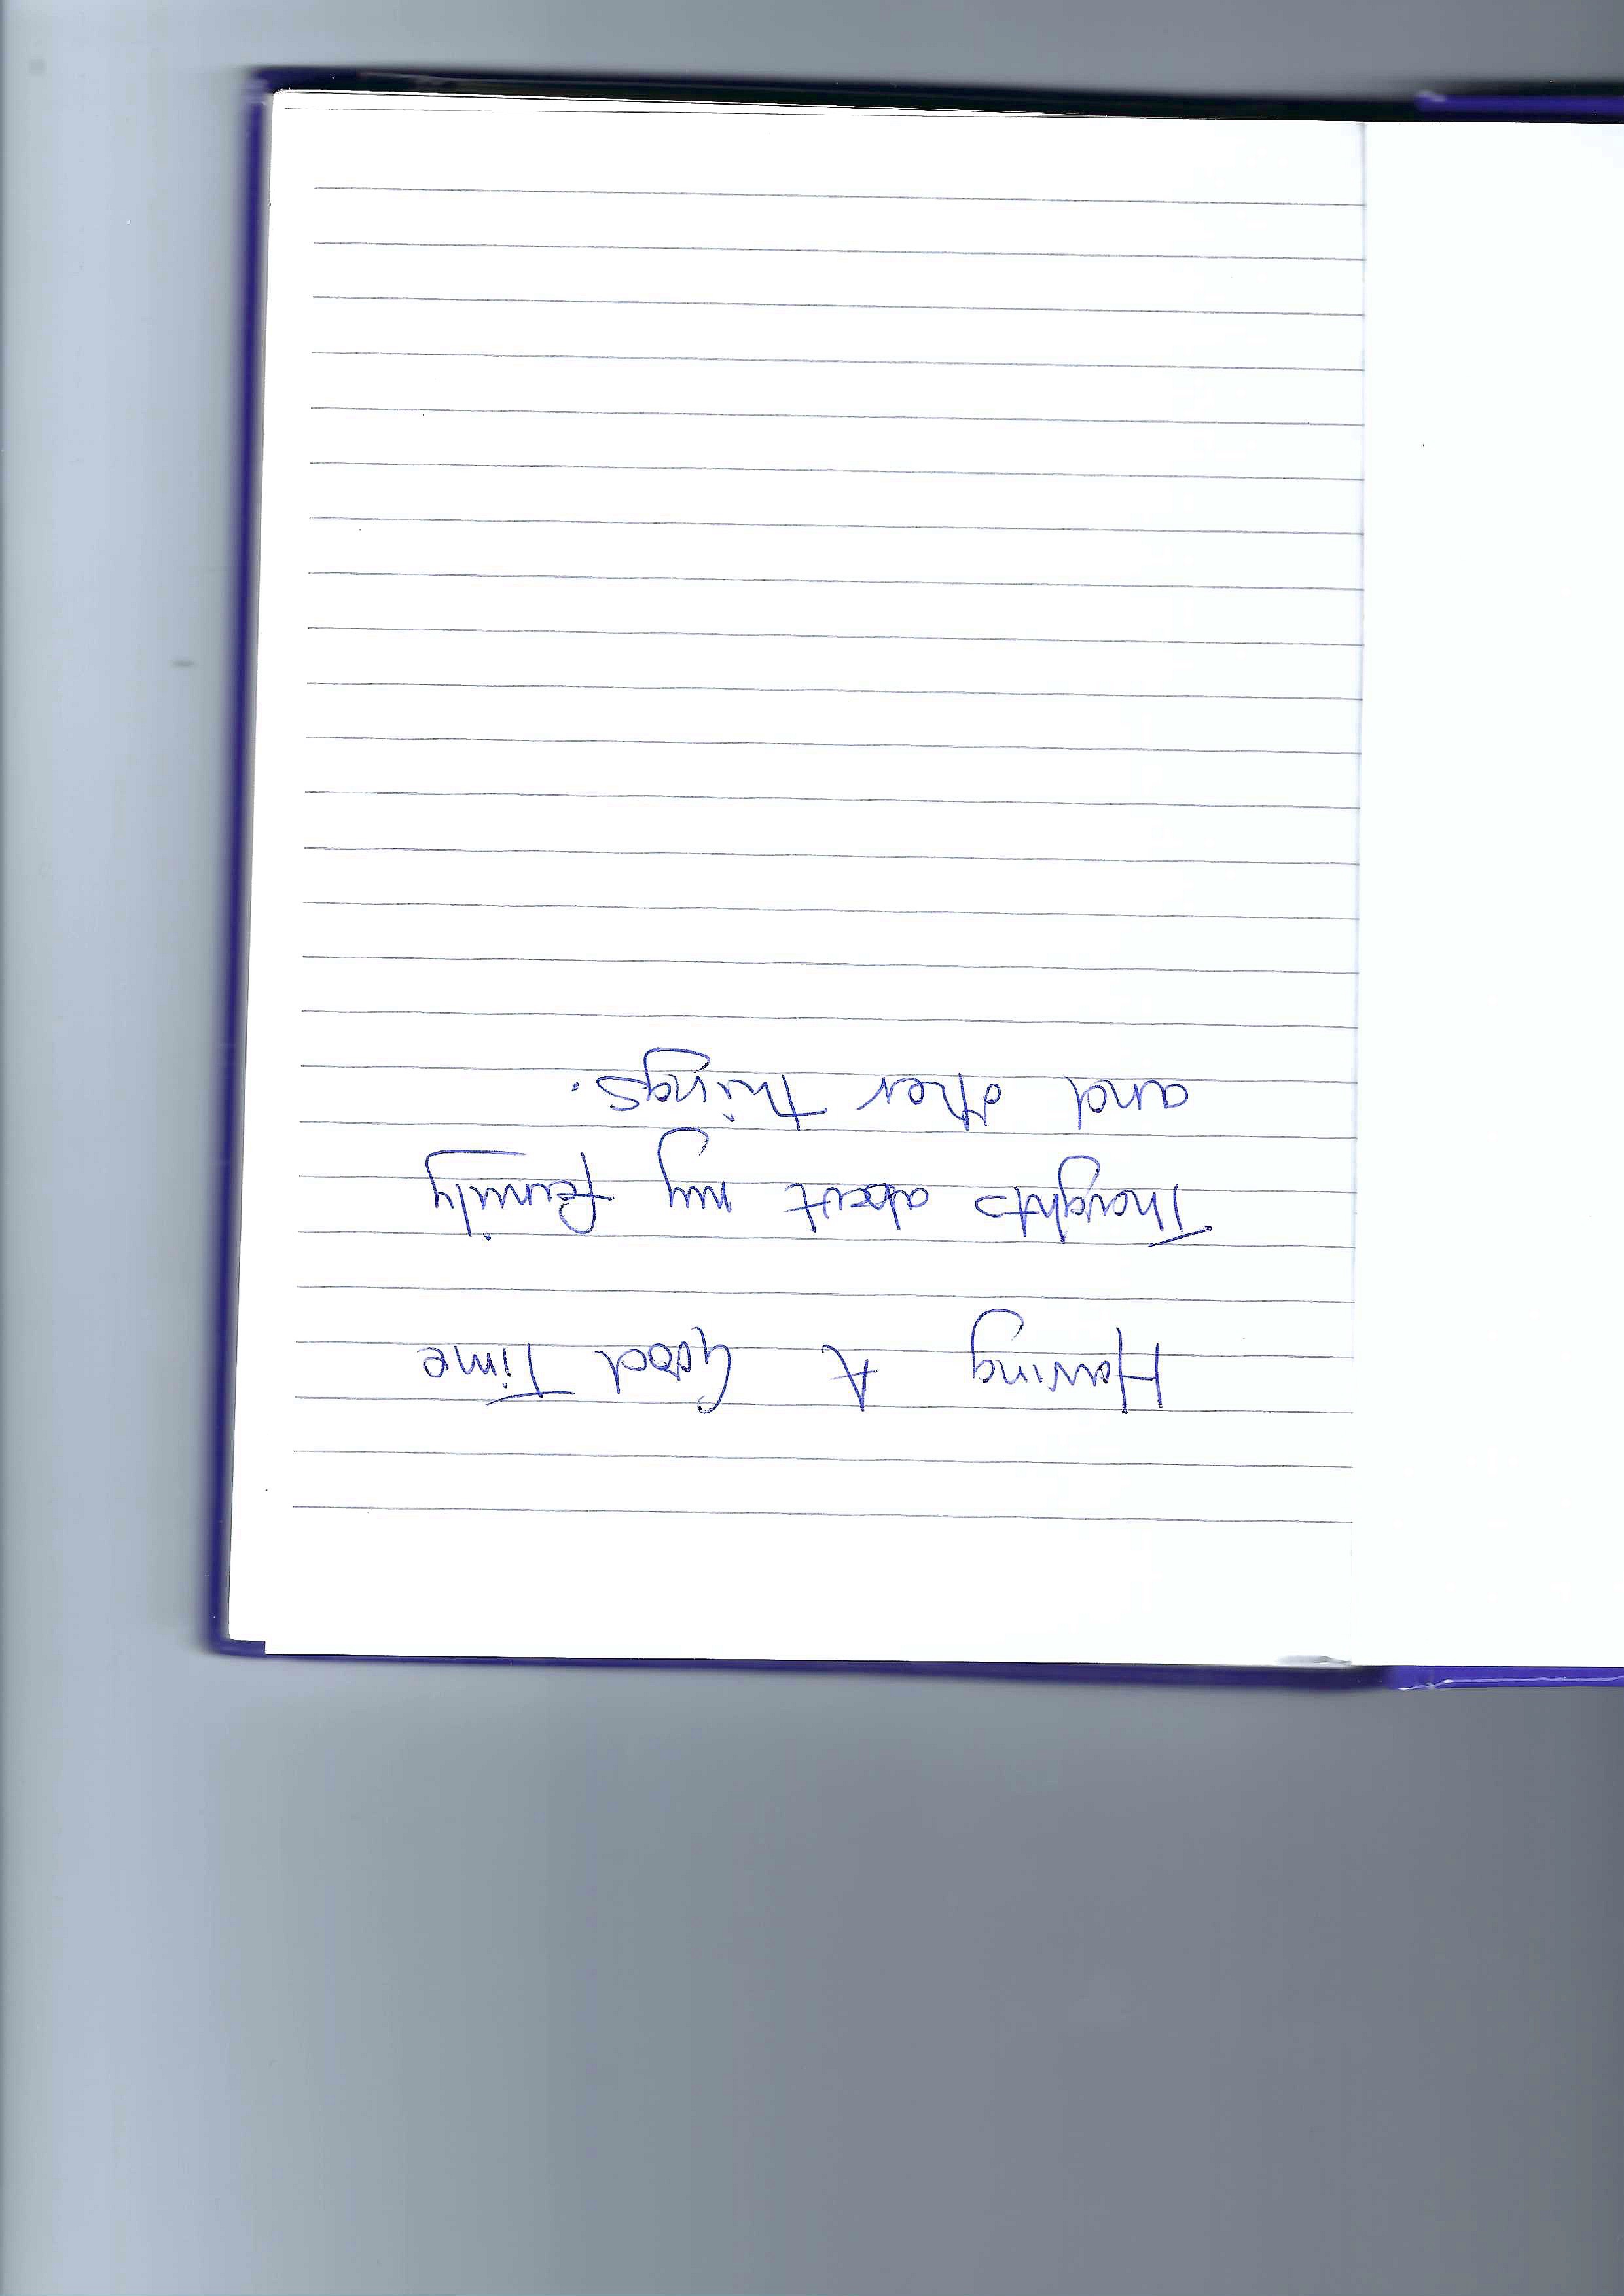 Having A Good Time
Thoughts about my family
and other things.